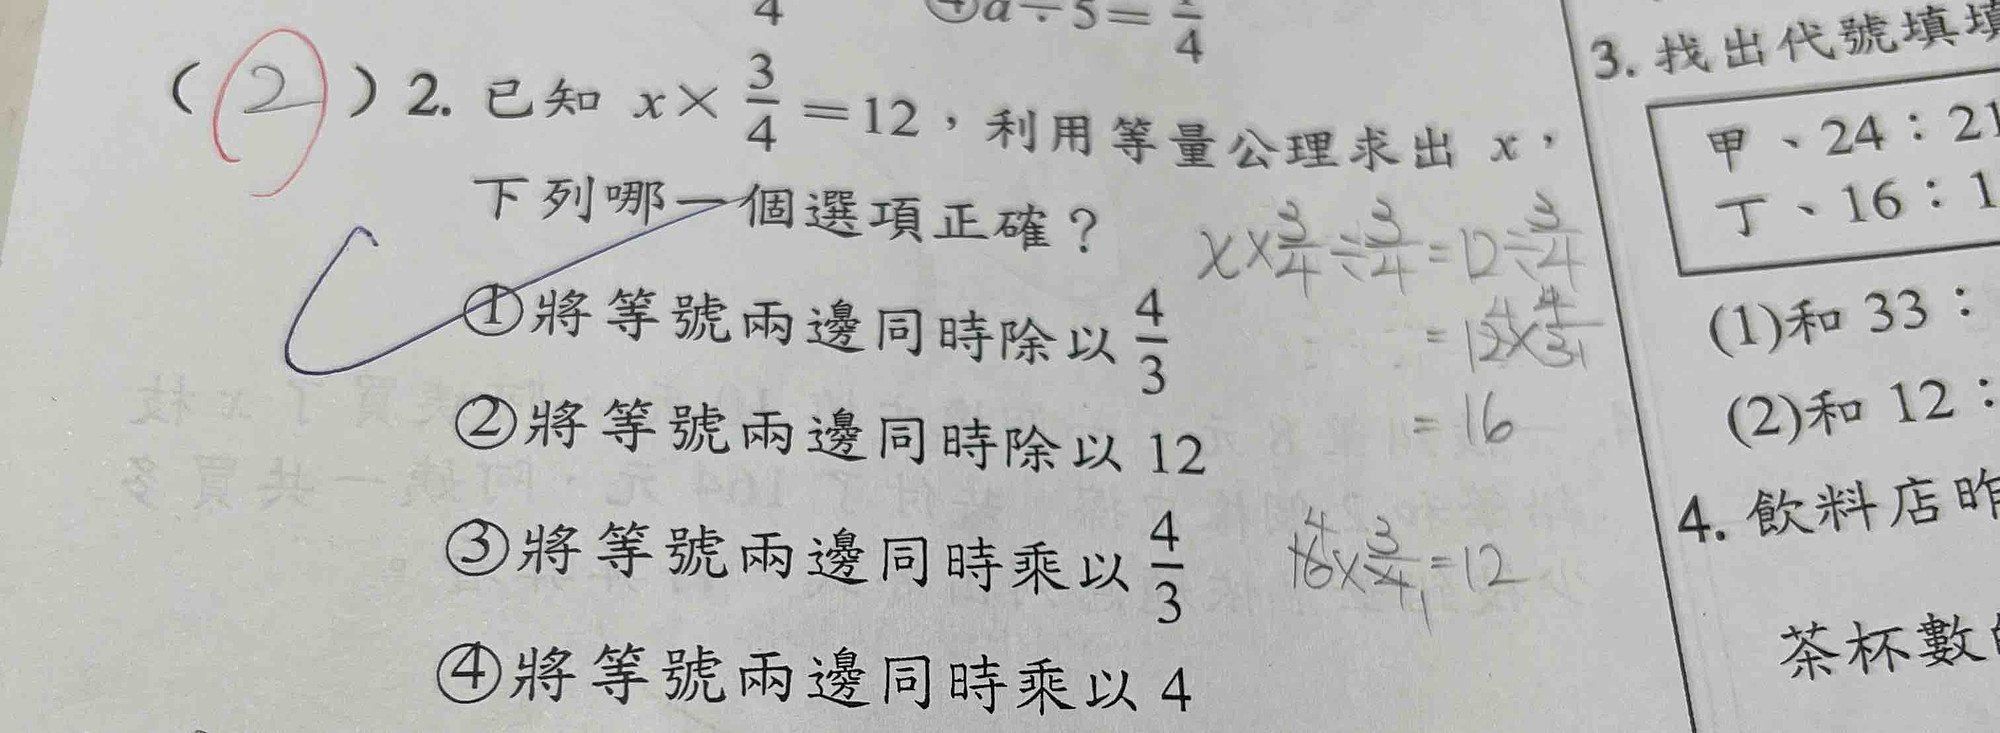 4
④a÷5=
4
( 2 ) 2. 已知 x× 3/4 =12，利用等量公理求出 x，
下列哪一個選項正確？
①將等號兩邊同時除以 4/3
②將等號兩邊同時除以 12
③將等號兩邊同時乘以 4/3
④將等號兩邊同時乘以 4
x×3/4÷3/4=12÷3/4
=12 4×4/3 1
=16
16 4×3/4 1=12
3. 找出代號填
甲、24：21
丁、16：1
(1)和 33：
(2)和 12：
4. 飲料店昨
茶杯數